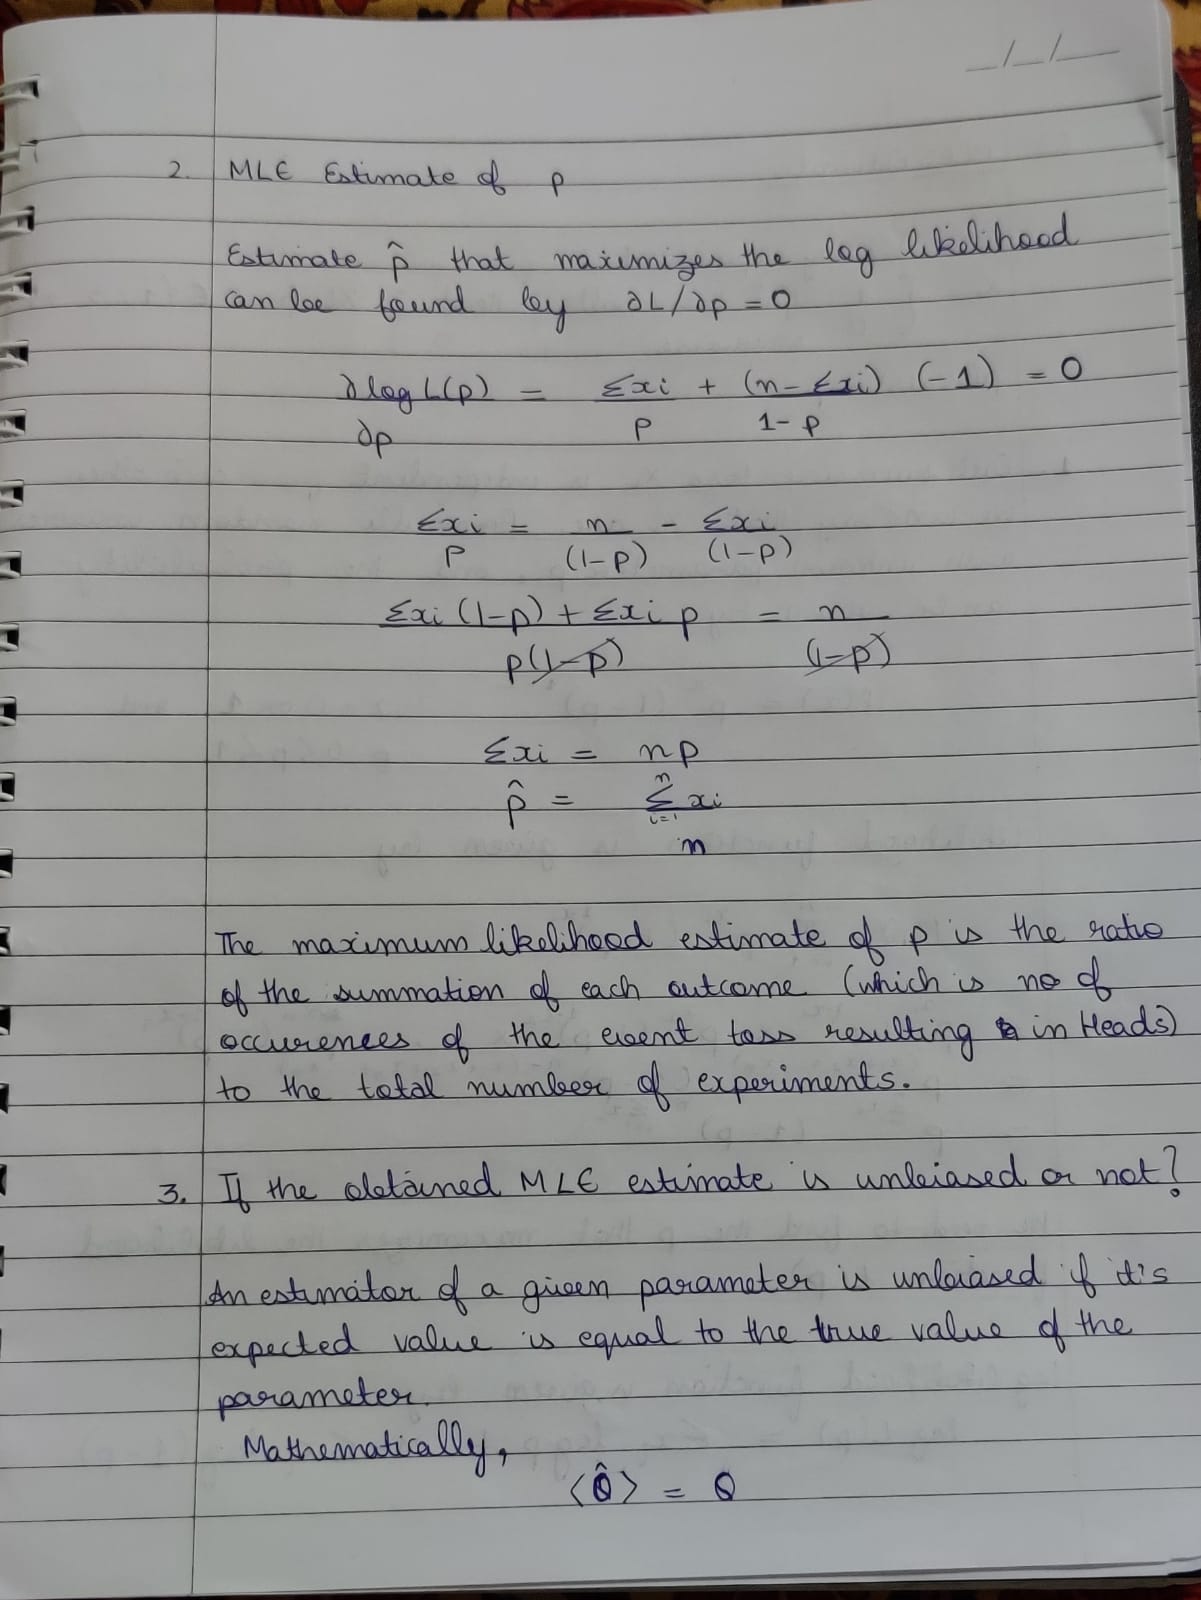 _/_/__
2. MLE Estimate of p
Estimate p̂ that maximizes the log likelihood
can be found by ∂L/∂p = 0
∂logL(p) = Σxi + (n-Σxi) (-1) = 0
∂p p 1-p
Σxi = n - Σxi
p (1-p) (1-p)
Σxi (1-p) + Σxi p = n
p(1-p) (1-p)
Σxi = np
p̂ = n Σ i=1 xi
n
The maximum likelihood estimate of p is the ratio
of the summation of each outcome (which is no of
occurences of the event toss resulting in Heads)
to the total number of experiments.
3. If the obtained MLE estimate is unbiased or not?
An estimator of a given parameter is unbiased if it's
expected value is equal to the true value of the
parameter.
Mathematically,
⟨θ̂⟩ = θ